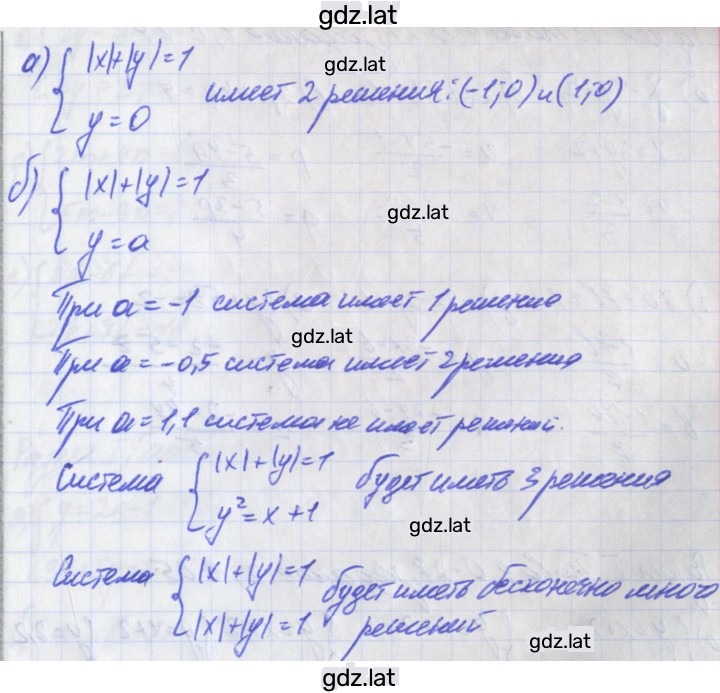 gdz.lat
а) { |x|+|y|=1
gdz.lat
имеет 2 решения: (-1; 0) и (1; 0)
y = 0
б) { |x|+|y|=1
gdz.lat
y = a
При a = -1 система имеет 1 решение
gdz.lat
При a = -0,5 система имеет 2 решения
При a = 1,1 система не имеет решений.
Система { |x|+|y|=1 будет иметь 3 решения
y² = x + 1
gdz.lat
Система { |x|+|y|=1 будет иметь бесконечно много
|x|+|y|=1 решений
gdz.lat
gdz.lat